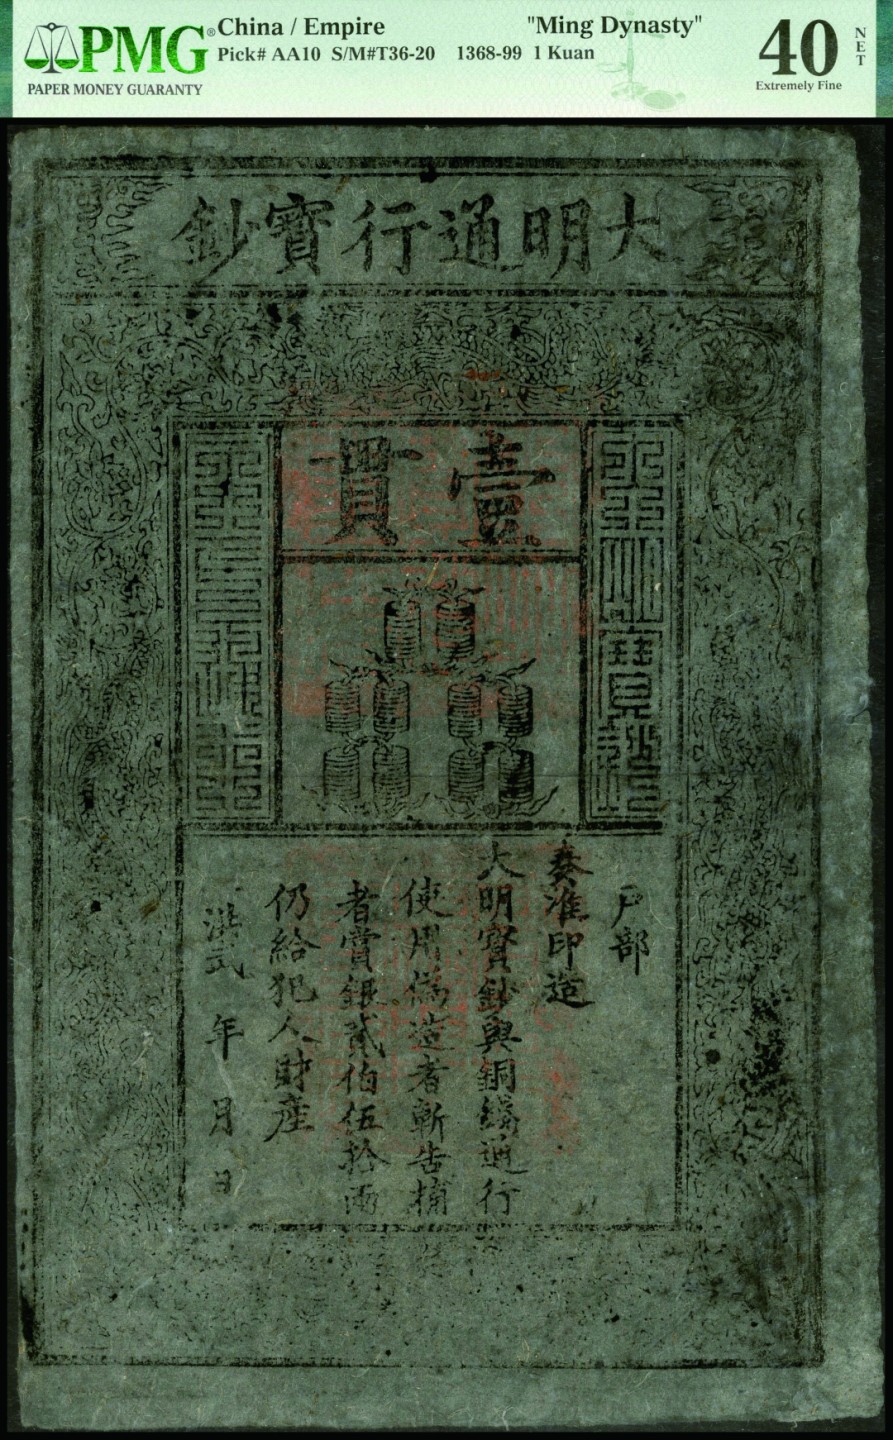 PMG
PAPER MONEY GUARANTY
China / Empire "Ming Dynasty"
Pick# AA10 S/M#T36-20 1368-99 1 Kuan
40
NET
Extremely Fine
大明通行寶鈔
壹貫
戶部
奏准印造
大明寶鈔與銅錢通行
使用偽造者斬告捕
者賞銀貳伯伍拾兩
仍給犯人財產
洪武 年 月 日